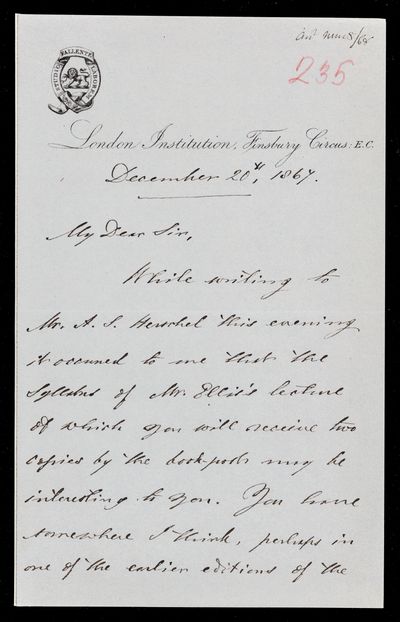 ansd Mar 8/68
235
STUDIO FALLENTE LABOREM
London Institution, Finsbury Circus: E.C.
December 20th, 1867.
My Dear Sir,
While writing to
Mr. A. S. Herschel this evening
it occurred to me that the
Syllabus of Mr. Ellis's lecture
of which you will receive two
copies by the book-post may be
interesting to you. You have
somewhere I think, perhaps in
one of the earlier editions of the